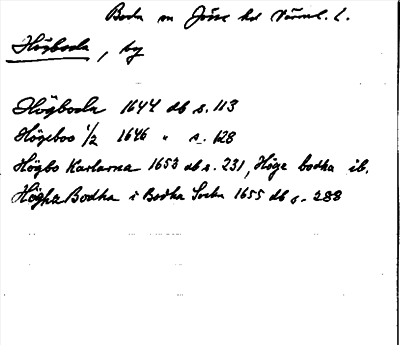 Boda sn Jösse hd Värml. l.
Högboda, by
Högboda 1644 db s. 113
Högeboo 1/2 1646 " s. 128
Högbo Karlarna 1653 db s. 231, Höge bodha ib.
Högha Bodha i Bodha Sochn 1655 db s. 288